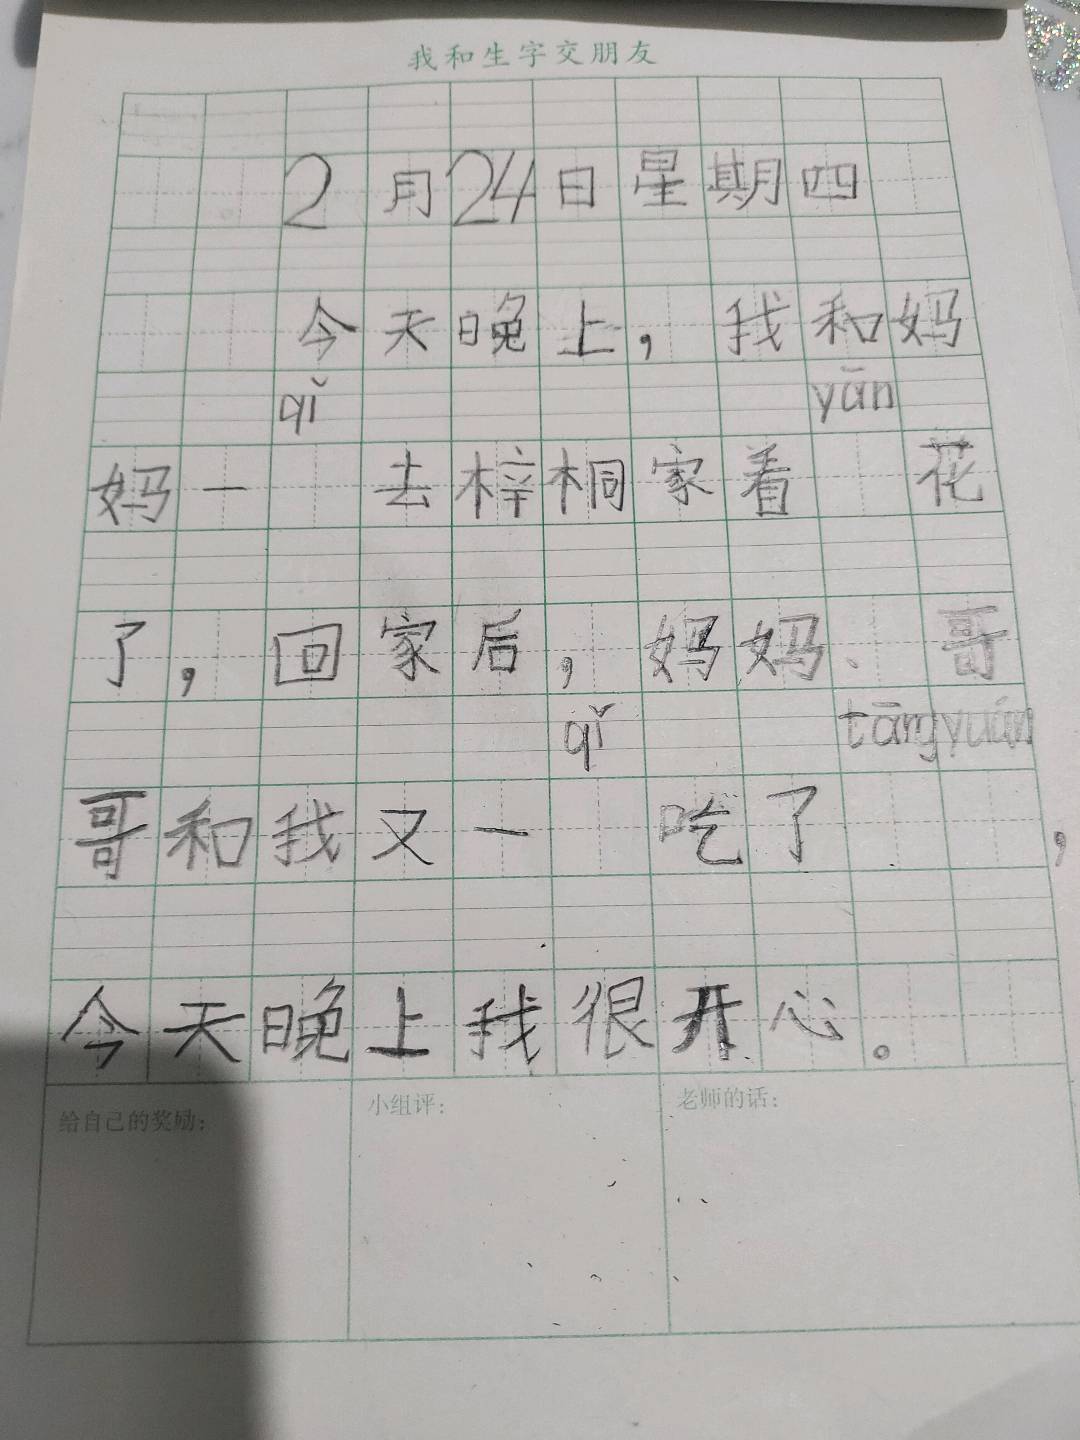 我和生字交朋友
2月24日星期四
今天晚上，我和妈
qǐ yān
妈一 去梓桐家着 花
了，回家后，妈妈、哥
qǐ tāngyuán
哥和我又一 吃了 ，
今天晚上我很开心。
给自己的奖励： 小组评： 老师的话：